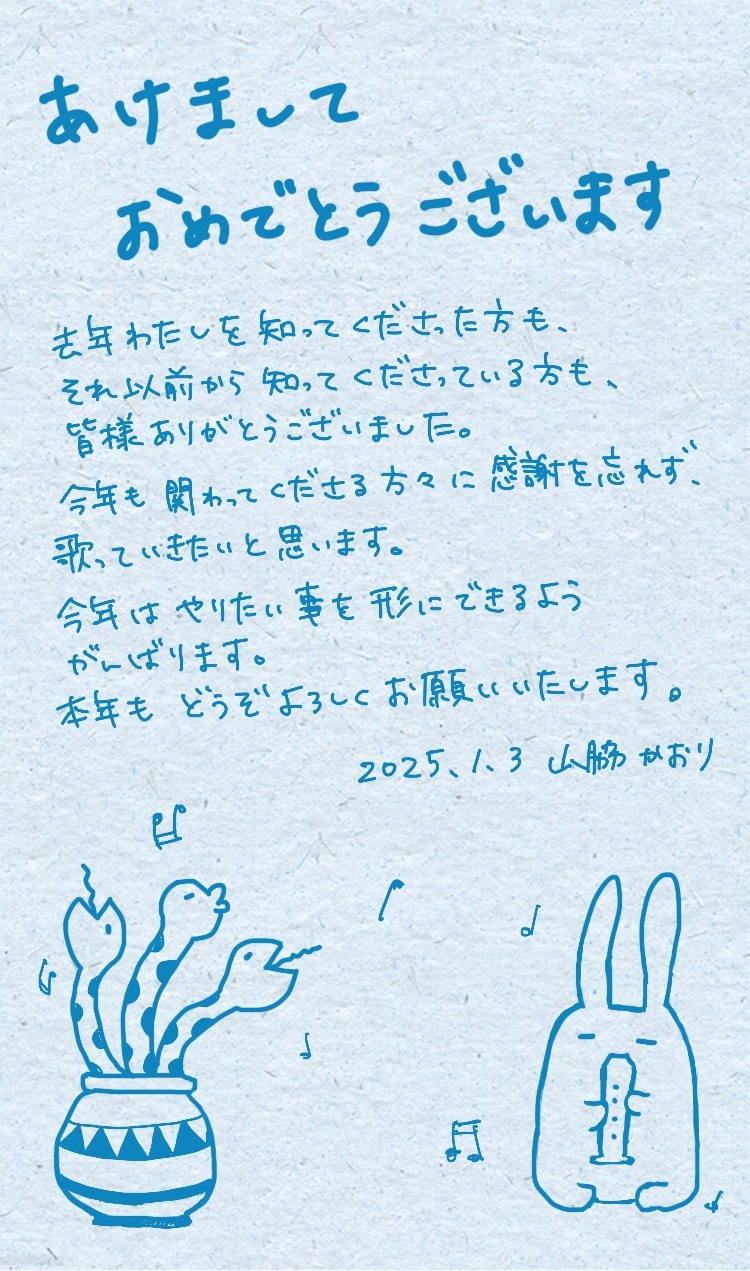 あけまして
おめでとうございます
去年わたしを知ってくださった方も、
それ以前から知ってくださっている方も、
皆様ありがとうございました。
今年も関わってくださる方々に感謝を忘れず、
歌っていきたいと思います。
今年はやりたい事を形にできるよう
がんばります。
本年もどうぞよろしくお願いいたします。
2025、1、3 山脇かおり